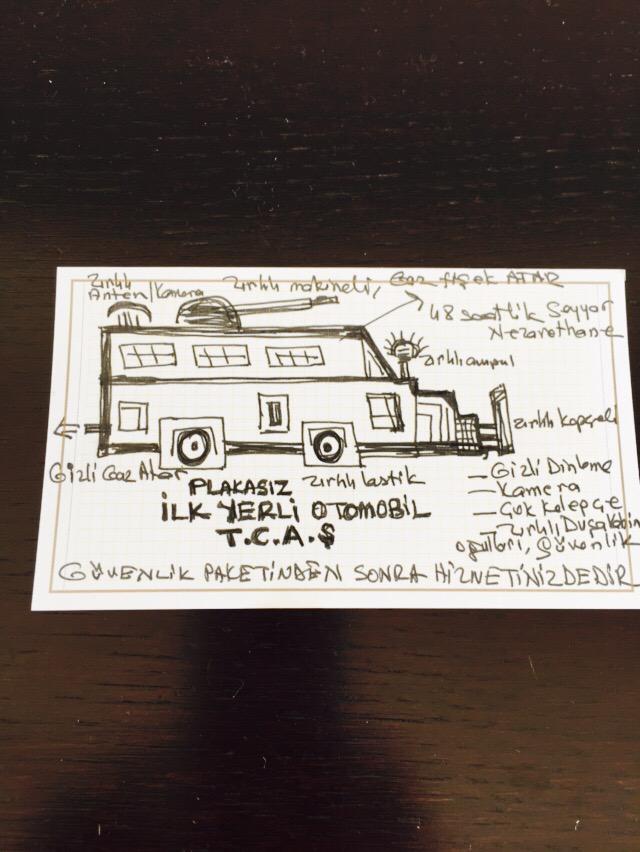 zırhlı
Anten/Kamera
zırhlı makineli, Gaz fişek ATAR
48 saatlik Seyyar
Nezarethane
zırhlı ampul
zırhlı kapçeli
Gizli Gaz Atar
zırhlı lastik
PLAKASIZ
İLK YERLİ OTOMOBİL
T.C.A.Ş
— Gizli Dinleme
— Kamera
— Çok Kelepçe
— Zırhlı Duşakabin
Güvenlik
GÜVENLİK PAKETİNDEN SONRA HİZNETİNİZDEDİR